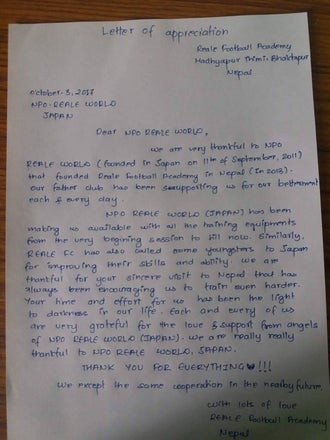 Letter of appreciation
Reale Football Academy
Madhyapur Thimi, Bhaktapur
Nepal
October-3, 2018
NPO-REALE WORLD
JAPAN
Dear NPO REALE WORLD,
We are very thankful to NPO
REALE WORLD (founded in Japan on 11th of September, 2011)
that founded Reale Football Academy in Nepal (In 2013).
Our father club has been supporting us for our betterment
each & every day.
NPO REALE WORLD (JAPAN) has been
making us available with all the training equipments
from the very begining session to till now. Similarly,
REALE FC has also called some youngsters to Japan
for improving their skills and ability. We are
thankful for your sincere visit to Nepal that has
always been encouraging us to train even harder.
Your time and effort for us has been the light
to darkness in our life. Each and every of us
are very grateful for the love & support from angels
of NPO REALE WORLD (JAPAN). We are really really
thankful to NPO REALE WORLD, JAPAN.
THANK YOU FOR EVERYTHING ♥!!!
We except the same cooperation in the nearby future.
With lots of love
REALE Football Academy,
Nepal